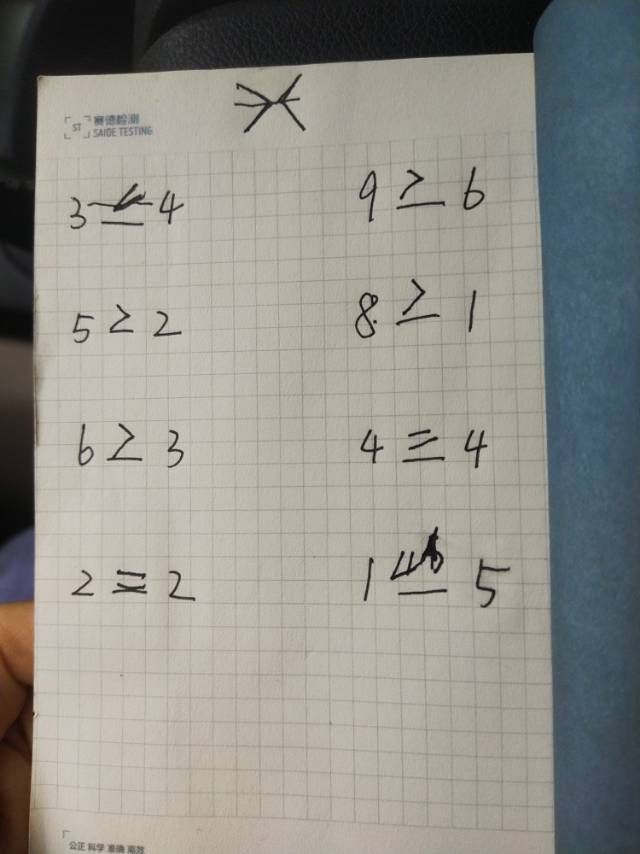 ST 赛德检测
SAIDE TESTING
3 4
9 > 6
5 > 2
8 > 1
6 > 3
4 = 4
2 = 2
1 5
公正 科学 准确 高效